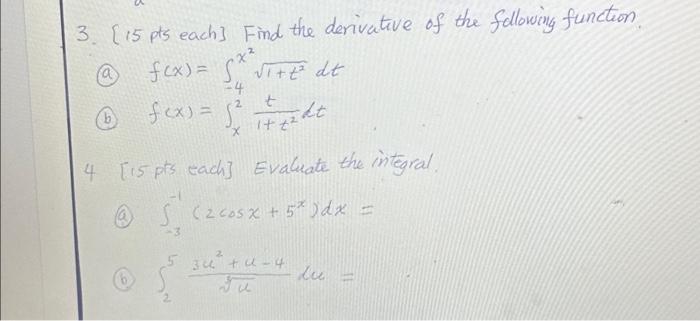 3. [15 pts each] Find the derivative of the following function.
(a) f(x) = ∫_{-4}^{x²} √(1+t²) dt
(b) f(x) = ∫_x^2 t/(1+t²) dt
4 [15 pts each] Evaluate the integral.
(a) ∫_{-3}^{-1} (2cosx + 5^x) dx =
(b) ∫_2^5 (3u² + u - 4)/∛u du =